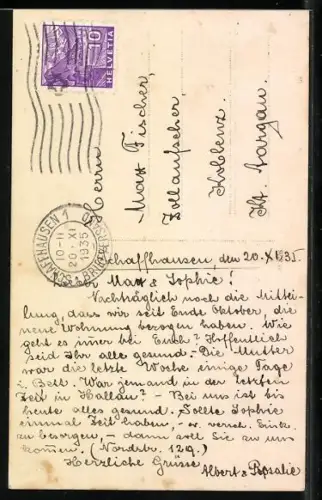 10
HELVETIA
SCHAFFHAUSEN 1
10-11
20. XI
1935
Herrn
Max Fischer,
Zollaufseher,
Koblenz.
Kt. Aargau.
Schaffhausen, den 20. XI. 35.
Max & Sophie!
Nachträglich noch die Mittei-
lung, dass wir seit Ende Oktober, die
neue Wohnung bezogen haben. Wie
geht es immer bei Euch? Hoffentlich
seid Ihr alle gesund. - Die Mutter
war die letzte Woche einige Tage
i. Bett. War jemand in der letzten
Zeit in Hallau? - Bei uns ist bis
heute alles gesund. Sollte Sophie
einmal Zeit haben, - Eink.
zu besorgen, - dann soll Sie zu uns
kommen. (Nordstr. 129.)
Herzliche Grüsse
Albert & Rosalie